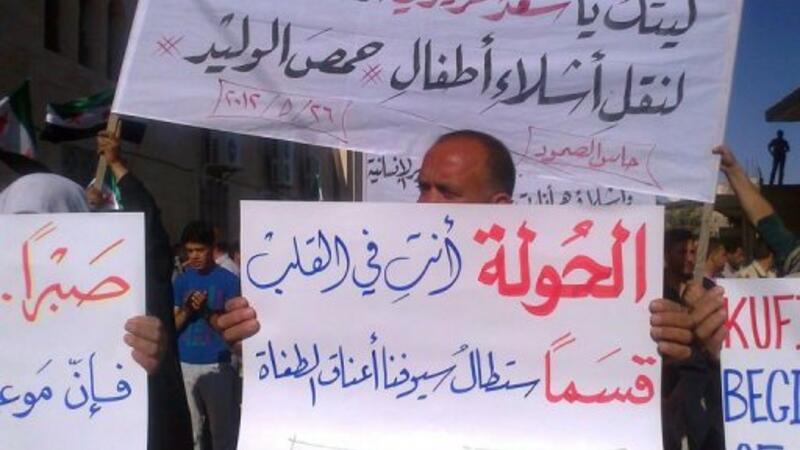 ليتك يا سعد
لنقل أشلاء أطفال * حمص الوليد *
٢٠١٢/٥/٢٦
حاس الصمود
الإنسانية
الحُولة أنتِ في القلب
قسَماً ستطالُ سيوفنا أعناق الطغاة
صَبْراً
فإنّ مَوعـ
KUF
BEGI